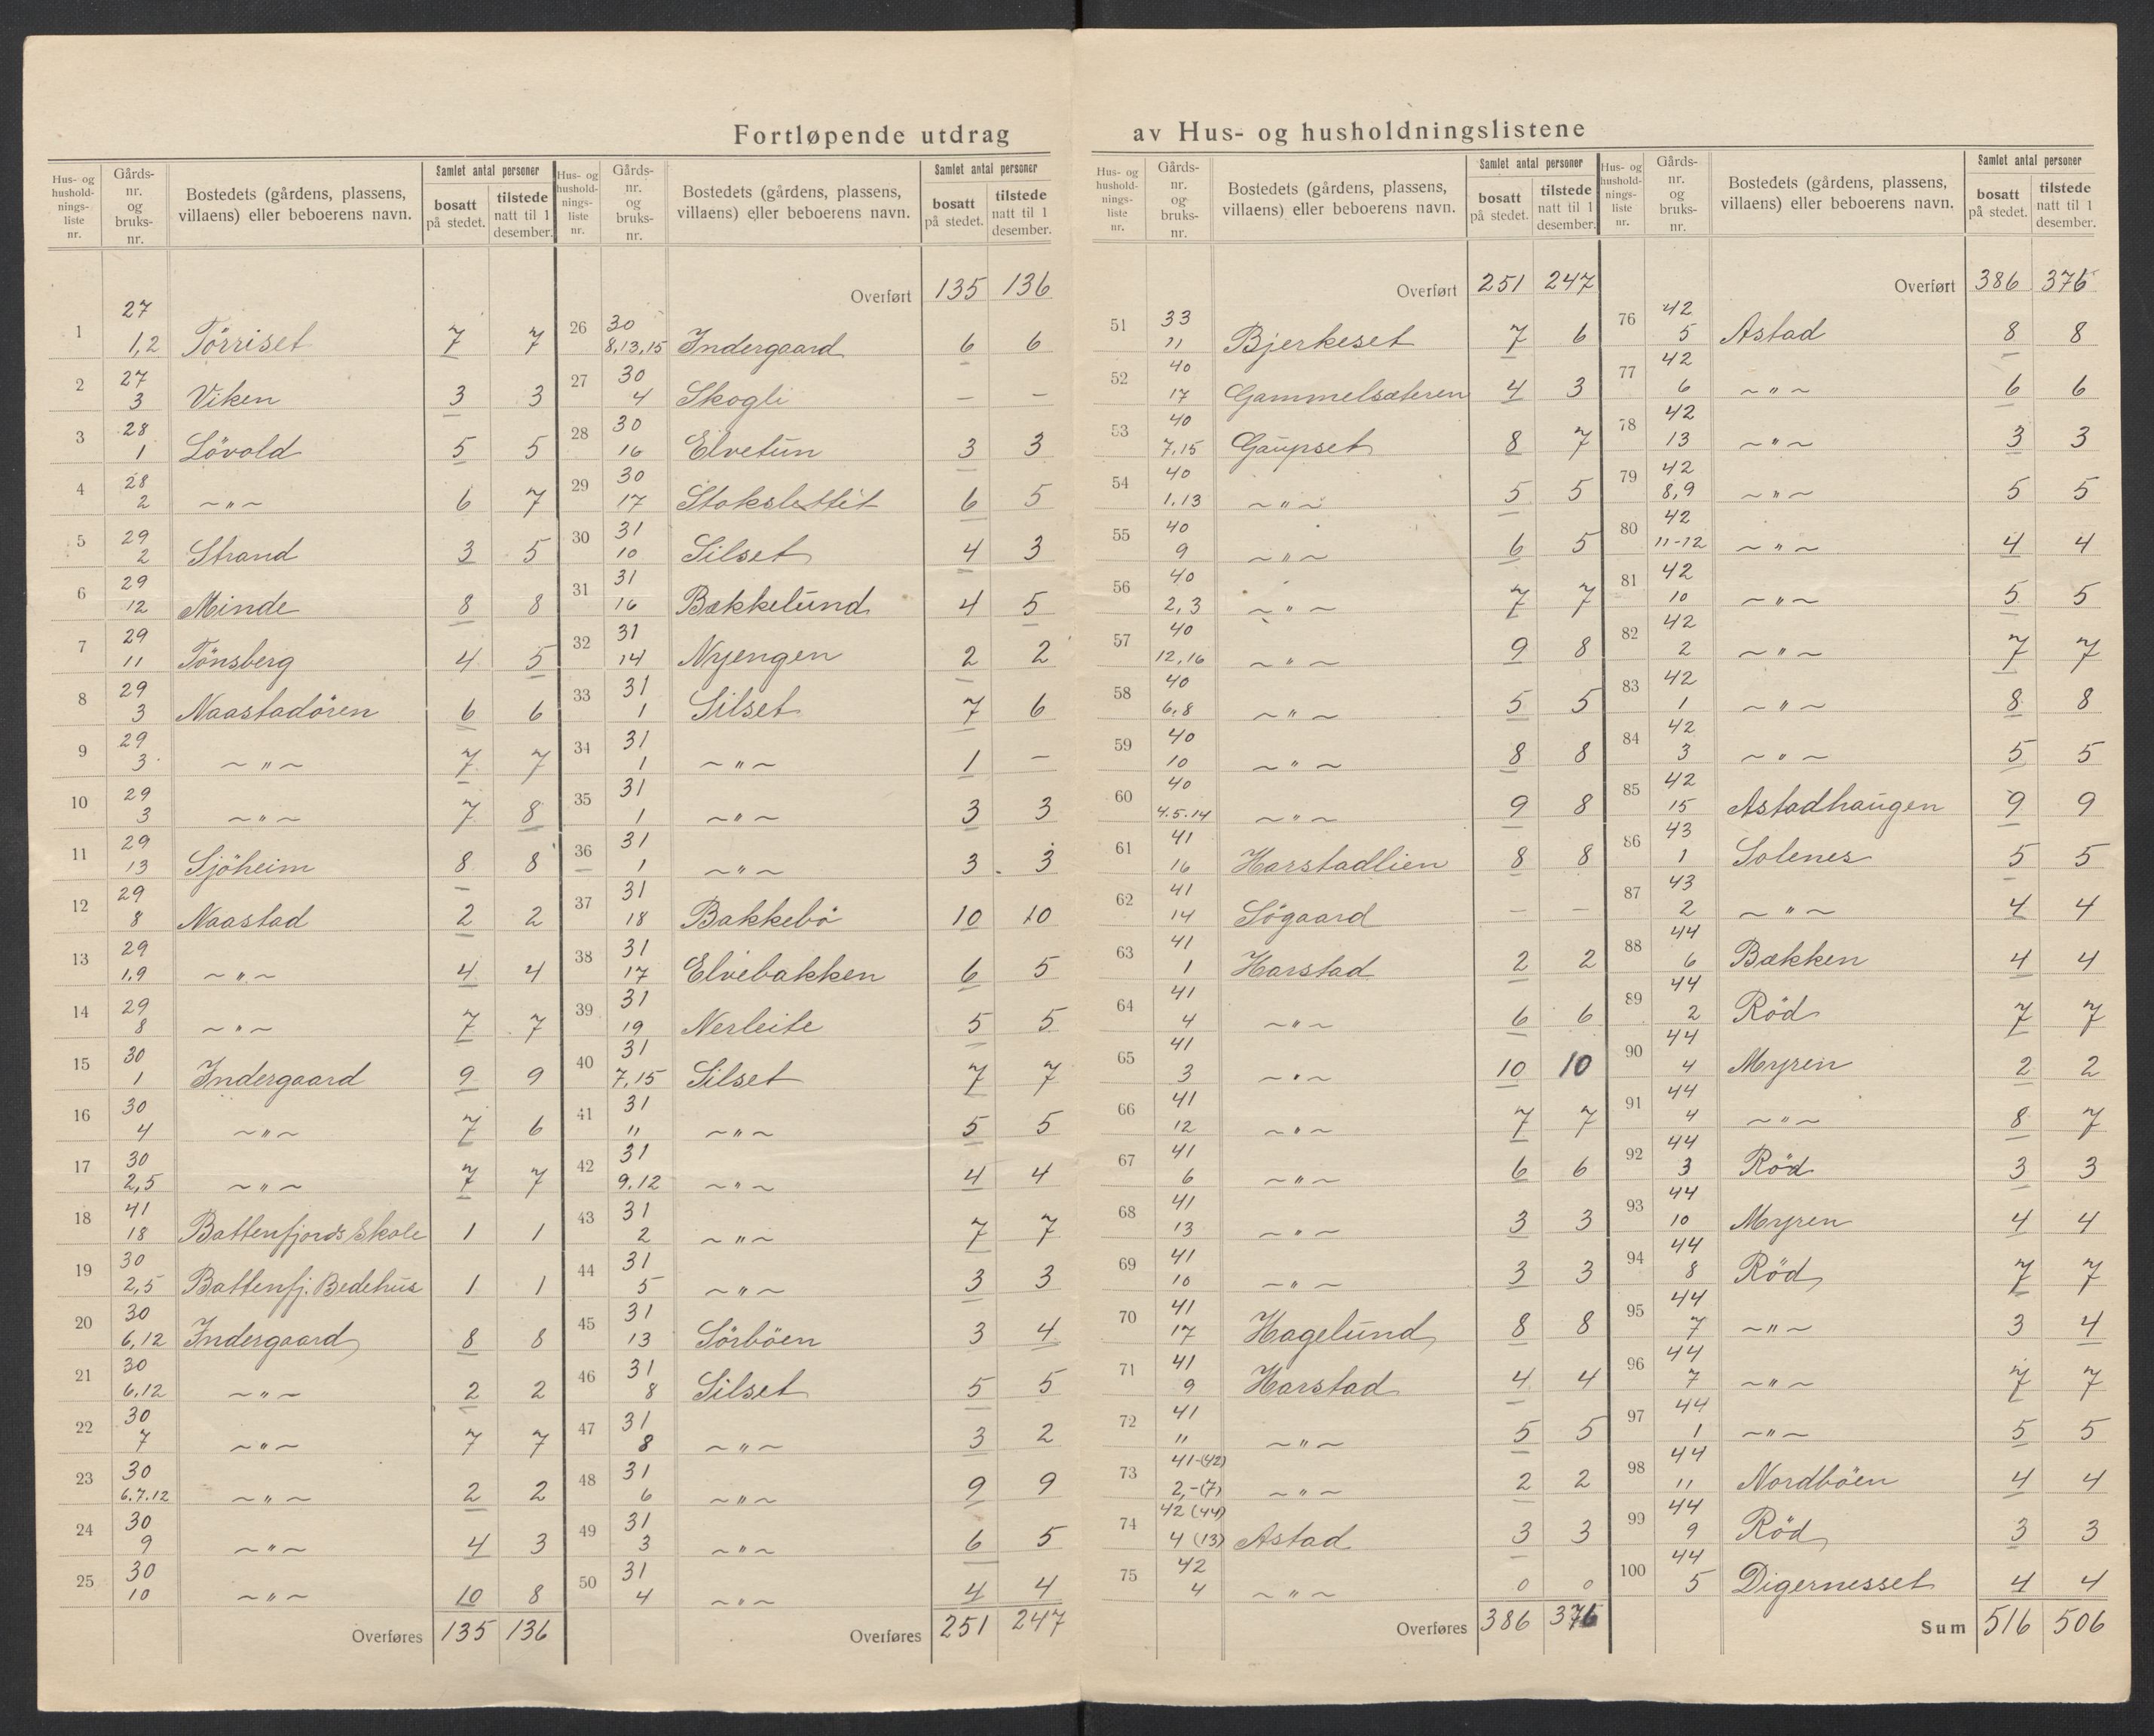 Fortløpende utdrag av Hus- og husholdningslistene
Hus- og hushold-nings-liste nr. | Gårds-nr. og bruks-nr. | Bostedets (gårdens, plassens, villaens) eller beboerens navn. | Samlet antal personer | bosatt på stedet. | tilstede natt til 1 desember.
1 | 27 1,2 | Törriset | 7 | 7
2 | 27 3 | Viken | 3 | 3
3 | 28 1 | Lövold | 5 | 5
4 | 28 2 | ~"~ | 6 | 7
5 | 29 2 | Strand | 3 | 5
6 | 29 12 | Minde | 8 | 8
7 | 29 11 | Tönsberg | 4 | 5
8 | 29 3 | Naastadören | 6 | 6
9 | 29 3 | ~"~ | 7 | 7
10 | 29 3 | ~"~ | 7 | 8
11 | 29 13 | Sjöheim | 8 | 8
12 | 29 8 | Naastad | 2 | 2
13 | 29 1,9 | ~"~ | 4 | 4
14 | 29 8 | ~"~ | 7 | 7
15 | 30 1 | Indergaard | 9 | 9
16 | 30 4 | ~"~ | 7 | 6
17 | 30 2,5 | ~"~ | 7 | 7
18 | 41 18 | Battenfjords Skole | 1 | 1
19 | 30 2,5 | Battenfj. Bedehus | 1 | 1
20 | 30 6,12 | Indergaard | 8 | 8
21 | 30 6,12 | ~"~ | 2 | 2
22 | 30 7 | ~"~ | 7 | 7
23 | 30 6.7.12 | ~"~ | 2 | 2
24 | 30 9 | ~"~ | 4 | 3
25 | 30 10 | ~"~ | 10 | 8
Overføres 135 136
Hus- og hushold-nings-liste nr. | Gårds-nr. og bruks-nr. | Bostedets (gårdens, plassens, villaens) eller beboerens navn. | Samlet antal personer | bosatt på stedet. | tilstede natt til 1 desember.
Overført 135 136
26 | 30 8,13,15 | Indergaard | 6 | 6
27 | 30 4 | Skogli | – | –
28 | 30 16 | Elvetun | 3 | 3
29 | 30 17 | Stokslettet | 6 | 5
30 | 31 10 | Silset | 4 | 3
31 | 31 16 | Bakkelund | 4 | 5
32 | 31 14 | Nyengen | 2 | 2
33 | 31 1 | Silset | 7 | 6
34 | 31 1 | ~"~ | 1 | –
35 | 31 1 | ~"~ | 3 | 3
36 | 31 1 | ~"~ | 3 | 3
37 | 31 18 | Bakkebö | 10 | 10
38 | 31 17 | Elvebakken | 6 | 5
39 | 31 19 | Nerleite | 5 | 5
40 | 31 7,15 | Silset | 7 | 7
41 | 31 11 | ~"~ | 5 | 5
42 | 31 9,12 | ~"~ | 4 | 4
43 | 31 2 | ~"~ | 7 | 7
44 | 31 5 | ~"~ | 3 | 3
45 | 31 13 | Sörböen | 3 | 4
46 | 31 8 | Silset | 5 | 5
47 | 31 8 | ~"~ | 3 | 2
48 | 31 6 | ~"~ | 9 | 9
49 | 31 3 | ~"~ | 6 | 5
50 | 31 4 | ~"~ | 4 | 4
Overføres 251 247
Hus- og hushold-nings-liste nr. | Gårds-nr. og bruks-nr. | Bostedets (gårdens, plassens, villaens) eller beboerens navn. | Samlet antal personer | bosatt på stedet. | tilstede natt til 1 desember.
Overført 251 247
51 | 33 11 | Bjerkeset | 7 | 6
52 | 40 17 | Gammelsæteren | 4 | 3
53 | 40 7,15 | Gaupset | 8 | 7
54 | 40 1.13 | ~"~ | 5 | 5
55 | 40 9 | ~"~ | 6 | 5
56 | 40 2,3 | ~"~ | 7 | 7
57 | 40 12,16 | ~"~ | 9 | 8
58 | 40 6,8 | ~"~ | 5 | 5
59 | 40 10 | ~"~ | 8 | 8
60 | 40 4.5.14 | ~"~ | 9 | 8
61 | 41 16 | Harstadlien | 8 | 8
62 | 41 14 | Sögaard | – | –
63 | 41 1 | Harstad | 2 | 2
64 | 41 4 | ~"~ | 6 | 6
65 | 41 3 | ~"~ | 10 | 10
66 | 41 12 | ~"~ | 7 | 7
67 | 41 6 | ~"~ | 6 | 6
68 | 41 13 | ~"~ | 3 | 3
69 | 41 10 | ~"~ | 3 | 3
70 | 41 17 | Hagelund | 8 | 8
71 | 41 9 | Harstad | 4 | 4
72 | 41 11 | ~"~ | 5 | 5
73 | 41-(42) 2,-(7) | ~"~ | 2 | 2
74 | 42 (44) 4 (13) | Astad | 3 | 3
75 | 42 4 | ~"~ | 0 | 0
Overføres 386 376
Hus- og hushold-nings-liste nr. | Gårds-nr. og bruks-nr. | Bostedets (gårdens, plassens, villaens) eller beboerens navn. | Samlet antal personer | bosatt på stedet. | tilstede natt til 1 desember.
Overført 386 376
76 | 42 5 | Astad | 8 | 8
77 | 42 6 | ~"~ | 6 | 6
78 | 42 13 | ~"~ | 3 | 3
79 | 42 8,9 | ~"~ | 5 | 5
80 | 42 11-12 | ~"~ | 4 | 4
81 | 42 10 | ~"~ | 5 | 5
82 | 42 2 | ~"~ | 7 | 7
83 | 42 1 | ~"~ | 8 | 8
84 | 42 3 | ~"~ | 5 | 5
85 | 42 15 | Astadhaugen | 9 | 9
86 | 43 1 | Solenes | 5 | 5
87 | 43 2 | ~"~ | 4 | 4
88 | 44 6 | Bækken | 4 | 4
89 | 44 2 | Röd | 7 | 7
90 | 44 4 | Myren | 2 | 2
91 | 44 4 | ~"~ | 8 | 7
92 | 44 3 | Röd | 3 | 3
93 | 44 10 | Myren | 4 | 4
94 | 44 8 | Röd | 7 | 7
95 | 44 7 | ~"~ | 3 | 4
96 | 44 7 | ~"~ | 7 | 7
97 | 44 1 | ~"~ | 5 | 5
98 | 44 11 | Nordböen | 4 | 4
99 | 44 9 | Röd | 3 | 3
100 | 44 5 | Digernesset | 4 | 4
Sum 516 506